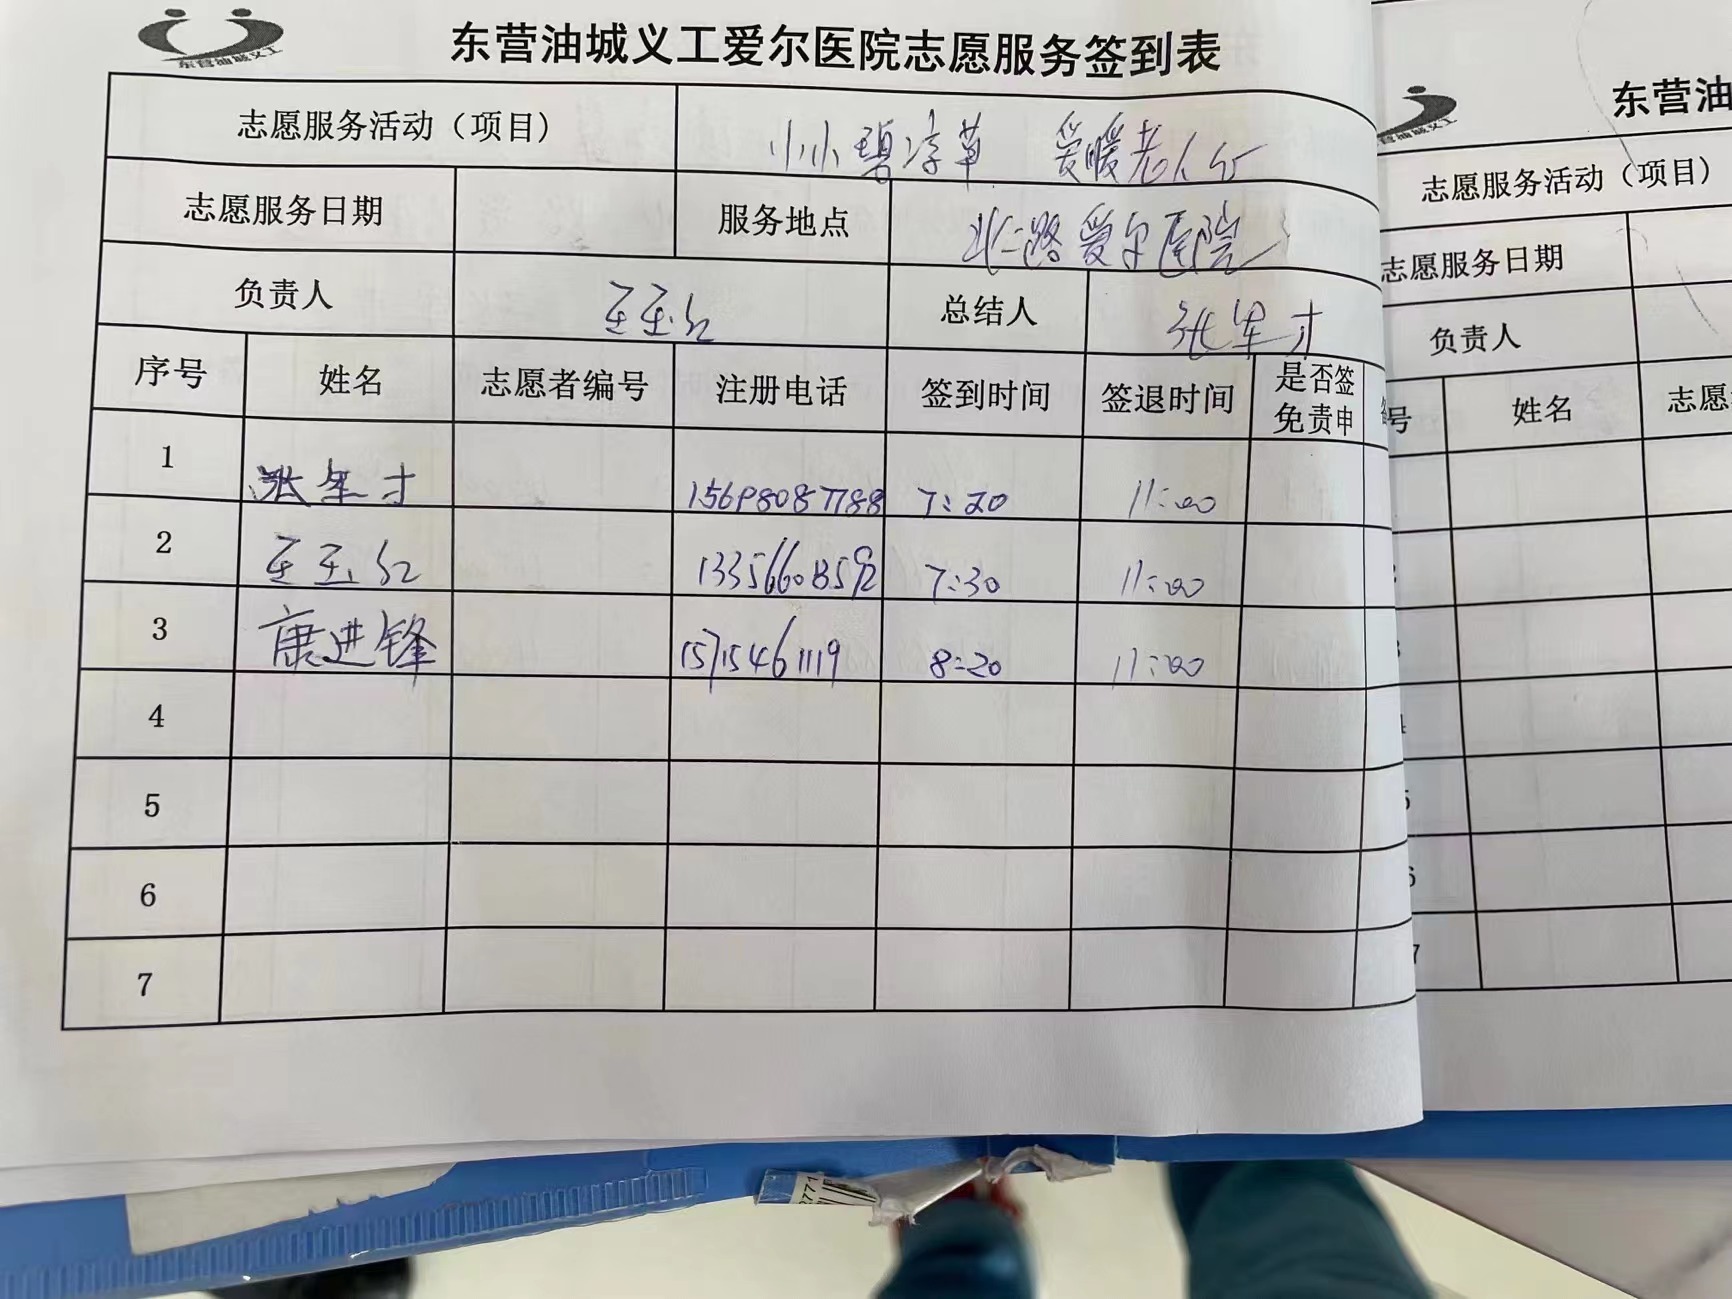 东营油城义工
东营油城义工爱尔医院志愿服务签到表
志愿服务活动（项目） 小小碧淳草 爱暖老人行
志愿服务日期 服务地点 北二路爱尔医院
负责人 王玉红 总结人 张军才
序号 姓名 志愿者编号 注册电话 签到时间 签退时间 是否签免责申
1 张军才 15698087788 7:20 11:00
2 王玉红 13356608592 7:30 11:00
3 康进锋 15715461119 8:20 11:00
4
5
6
7
东营油
志愿服务活动（项目）
志愿服务日期
负责人
号 姓名 志愿